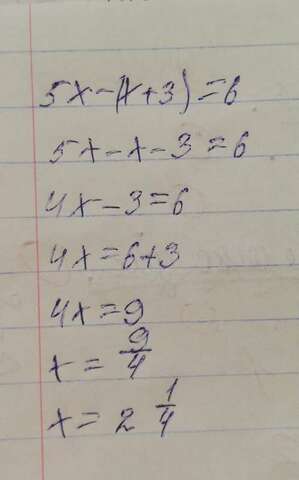 5x-(x+3)=6
5x-x-3=6
4x-3=6
4x=6+3
4x=9
x=9/4
x=2 1/4